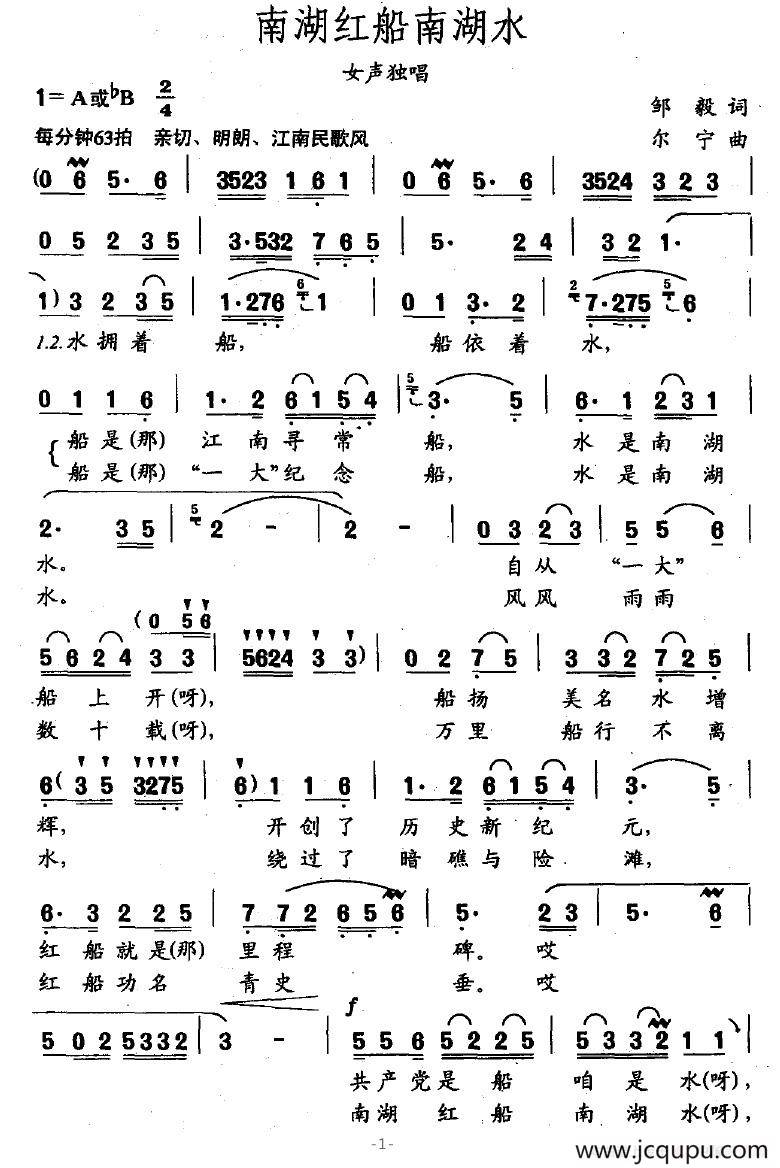 南湖红船南湖水
女声独唱
1=A或♭B 2/4
邹毅词
每分钟63拍 亲切、明朗、江南民歌风
尔宁曲
(0 6 5· 6 | 3523 1 6 1 | 0 6 5· 6 | 3524 3 2 3 |
0 5 2 3 5 | 3·532 7 6 5 | 5· 2 4 | 3 2 1· |
1) 3 2 3 5 | 1·276 6 1 | 0 1 3· 2 | 2 7·275 5 6 |
1.2.水拥着 船, 船依着 水,
0 1 1 6 | 1· 2 6 1 5 4 | 5 3· 5 | 6· 1 2 3 1 |
船是(那) 江南寻常 船, 水是南湖
船是(那)“一大”纪念 船, 水是南湖
2· 3 5 | 5 2 - | 2 - | 0 3 2 3 | 5 5 6 |
水。 自从“一大”
水。 风风 雨雨
(0 5 6
5 6 2 4 3 3 | 5624 3 3) | 0 2 7 5 | 3 3 2 7 2 5 |
船上开(呀), 船扬 美名水增
数十载(呀), 万里 船行不离
6 (3 5 3275 | 6) 1 1 6 | 1· 2 6 1 5 4 | 3· 5 |
辉, 开创了 历史新纪 元,
水, 绕过了 暗礁与险 滩,
6· 3 2 2 5 | 7 7 2 6 5 6 | 5· 2 3 | 5· 6 |
红船就是(那) 里程 碑。 哎
红船功名 青史 垂。 哎
f
5 0 2 5 3 3 2 | 3 - | 5 5 6 5 2 2 5 | 5 3 3 2 1 1 |
共产党是船 咱是水(呀),
南湖红船 南湖水(呀),
-1-
www.jcqupu.com